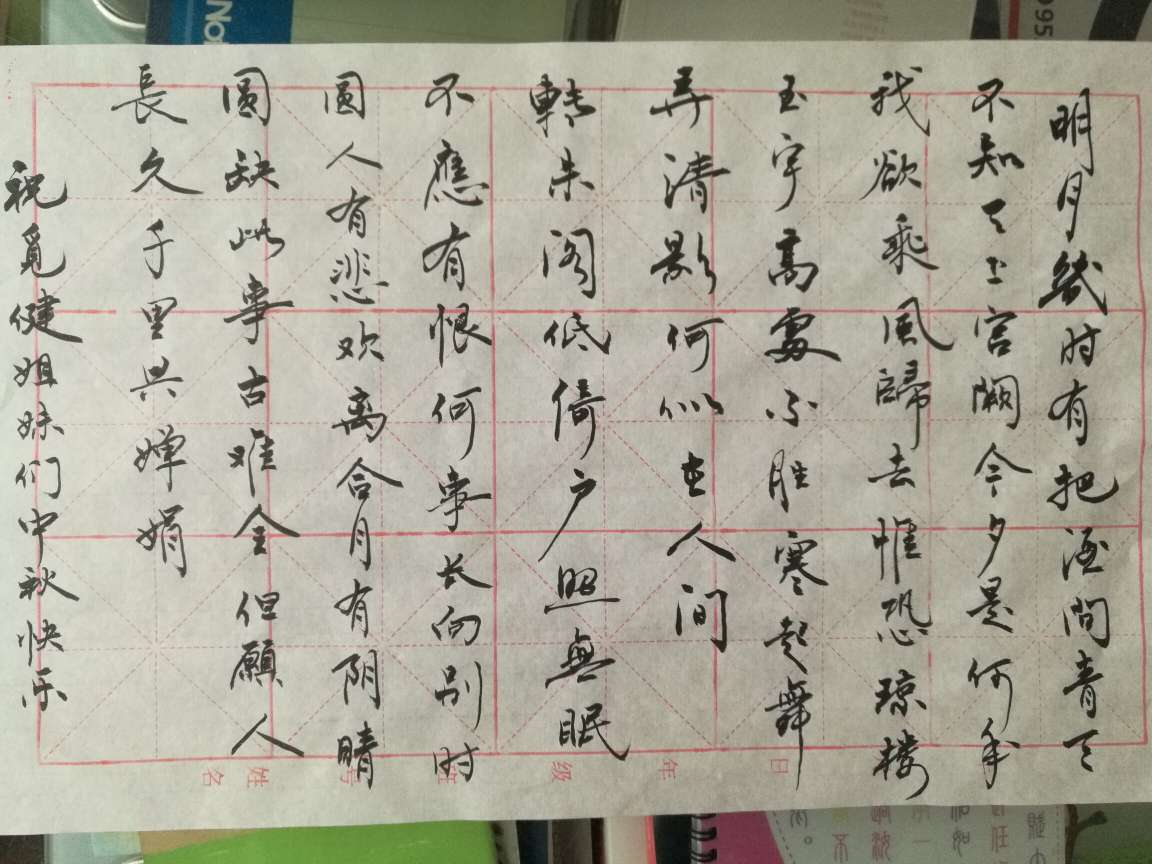 明月幾时有把酒问青天
不知天上宫阙今夕是何年
我欲乘風歸去惟恐琼楼
玉宇高處不胜寒起舞
弄清影何似在人间
轉朱阁低倚户照無眠
不應有恨何事长向别时
圆人有悲欢离合月有阴晴
圆缺此事古难全但願人
長久千里共婵娟
祝觅健姐妹们中秋快乐
日
年
级
班
号
姓名
Not
995